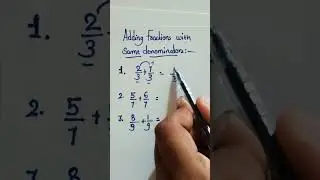 Adding Fractions with
Same denominators:-
1. 2/3 + 7/3 =
2. 5/7 + 6/7 =
3. 8/9 + 1/9 =